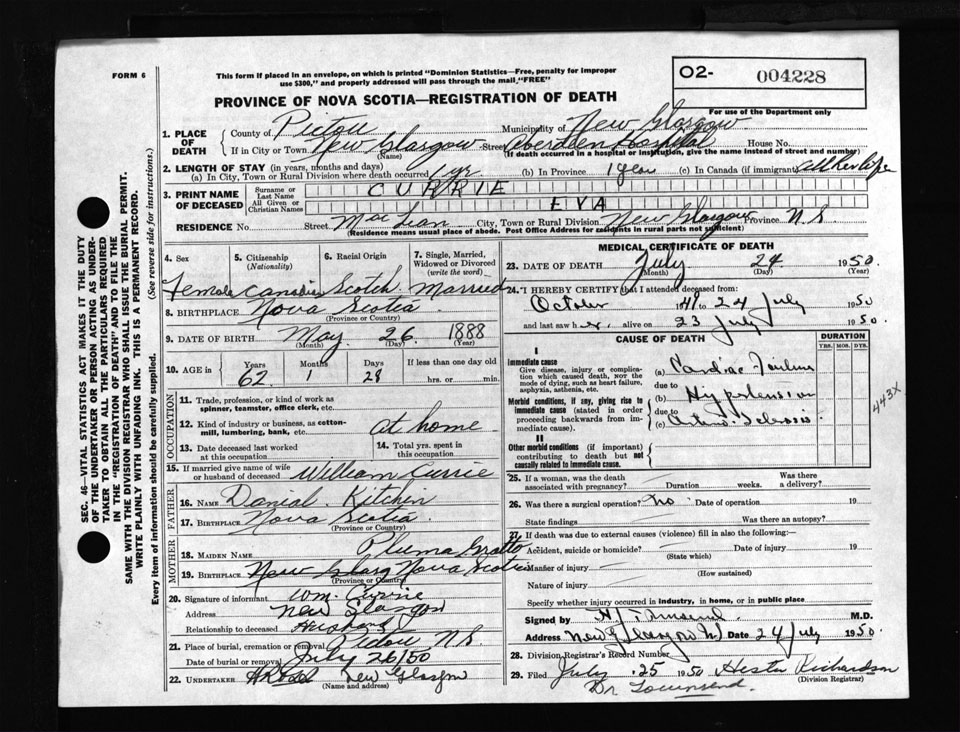 FORM 6
This form if placed in an envelope, on which is printed "Dominion Statistics—Free, penalty for improper
use $300," and properly addressed will pass through the mail, "FREE"
O2- 004228
PROVINCE OF NOVA SCOTIA—REGISTRATION OF DEATH
For use of the Department only
1. PLACE OF DEATH
County of Pictou Municipality of New Glasgow
If in City or Town New Glasgow Street Aberdeen Hospital House No.
(Name) (If death occurred in a hospital or institution, give the name instead of street and number)
2. LENGTH OF STAY (in years, months and days)
(a) In City, Town or Rural Division where death occurred 1 yr (b) In Province 1 Year (c) In Canada (if immigrant) All her life
3. PRINT NAME OF DECEASED
Surname or Last Name CURRIE
All Given or Christian Names EVA
RESIDENCE No. Street MacLean City, Town or Rural Division New Glasgow Province N.S
(Residence means usual place of abode. Post Office Address for residents in rural parts not sufficient)
4. Sex 5. Citizenship (Nationality) 6. Racial Origin 7. Single, Married, Widowed or Divorced (write the word)
Female Canadian Scotch Married
8. BIRTHPLACE Nova Scotia
(Province or Country)
9. DATE OF BIRTH May 26 1888
(Month) (Day) (Year)
10. AGE in Years Months Days If less than one day old
62 1 28 hrs. or min.
OCCUPATION
11. Trade, profession, or kind of work as spinner, teamster, office clerk, etc.
12. Kind of industry or business, as cotton-mill, lumbering, bank, etc. at home
13. Date deceased last worked at this occupation
14. Total yrs. spent in this occupation
15. If married give name of wife or husband of deceased William Currie
FATHER
16. NAME Danial Kitchin
17. BIRTHPLACE Nova Scotia
(Province or Country)
MOTHER
18. MAIDEN NAME Pluma Gratto
19. BIRTHPLACE New Glasg Nova Scotia
(Province or Country)
20. Signature of informant Wm. Currie
Address New Glasgow
Relationship to deceased Husband
21. Place of burial, cremation or removal N.S.
Date of burial or removal July 26/50
22. UNDERTAKER New Glasgow
(Name and address)
MEDICAL CERTIFICATE OF DEATH
23. DATE OF DEATH July 24 1950
(Month) (Day) (Year)
24. I HEREBY CERTIFY that I attended deceased from:
October 1949 to 24 July 1950
and last saw her alive on 23 July 1950.
CAUSE OF DEATH DURATION
YRS. MOS. DYS.
I
Immediate cause
Give disease, injury or complication which caused death, not the mode of dying, such as heart failure, asphyxia, asthenia, etc.
(a) Cardiac Failure
due to
Morbid conditions, if any, giving rise to immediate cause (stated in order proceeding backwards from immediate cause).
(b) Hypertension
due to
(c) Arterio-Sclerosis
443X
II
Other morbid conditions (if important) contributing to death but not causally related to immediate cause.
25. If a woman, was the death associated with pregnancy? Duration weeks. Was there a delivery?
26. Was there a surgical operation? No Date of operation 19
State findings Was there an autopsy?
27. If death was due to external causes (violence) fill in also the following:
Accident, suicide or homicide? Date of injury 19
(State which)
Manner of injury
(How sustained)
Nature of injury
Specify whether injury occurred in industry, in home, or in public place
Signed by M.D.
Address New Glasgow Date 24 July 1950
28. Division Registrar's Record Number
29. Filed July 25 1950 Hester Richardson
(Division Registrar)
Dr Townsend.
SEC. 46—VITAL STATISTICS ACT MAKES IT THE DUTY
OF THE UNDERTAKER OR PERSON ACTING AS UNDER-
TAKER TO OBTAIN ALL THE PARTICULARS REQUIRED
IN THE "REGISTRATION OF DEATH" AND TO FILE THE
SAME WITH THE DIVISION REGISTRAR WHO SHALL ISSUE THE BURIAL PERMIT.
WRITE PLAINLY WITH UNFADING INK. THIS IS A PERMANENT RECORD.
Every item of information should be carefully supplied. (See reverse side for instructions.)